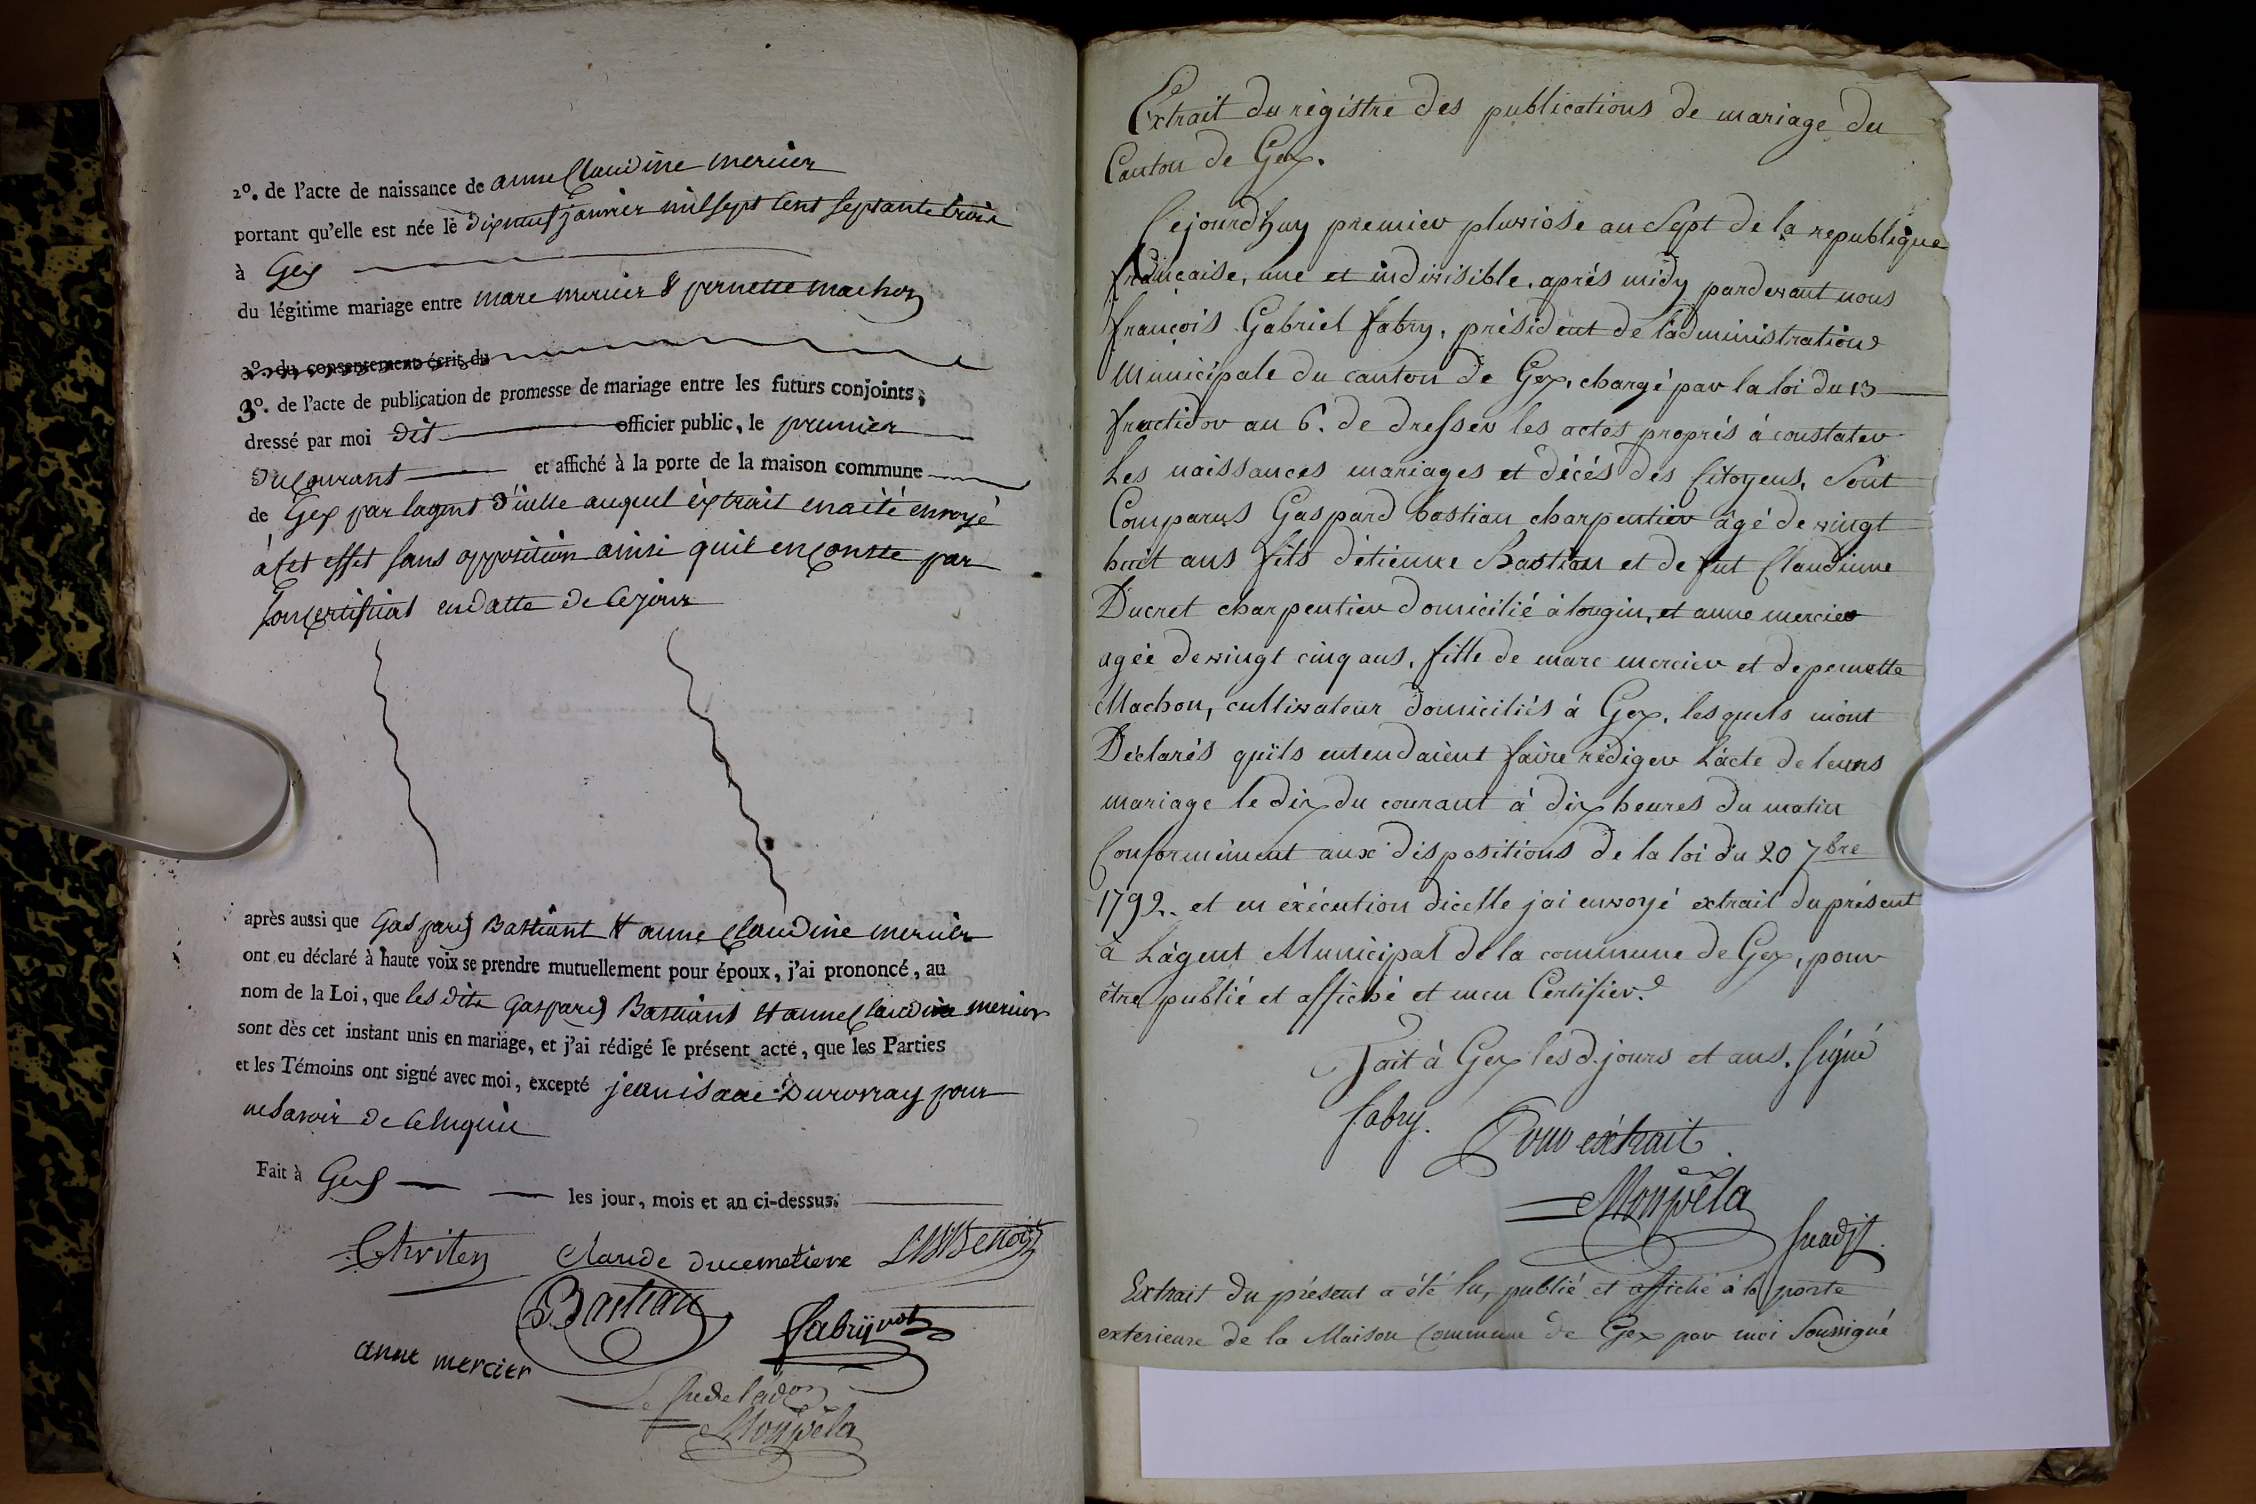 2.º de l'acte de naissance de anne Claudine mercier
portant qu'elle est née le dixneuf janvier mil sept cent septante trois
à Gex
du légitime mariage entre marc mercier & pernette machon
3.º du consentement écrit du
3º. de l'acte de publication de promesse de mariage entre les futurs conjoints,
dressé par moi dit officier public, le premier
du Courant et affiché à la porte de la maison commune
de Gex par lagent d'icelle auquel éxtrait en a été envoyé
a Cet effet sans opposition ainsi quil en Conste par
son Certifficat en datte de Ce jour
après aussi que Gaspard Bastiant & anne Claudine mercier
ont eu déclaré à haute voix se prendre mutuellement pour époux, j'ai prononcé, au
nom de la Loi, que les dits Gaspard Bastiant & anne Claudine mercier
sont dès cet instant unis en mariage, et j'ai rédigé le présent acte, que les Parties
et les Témoins ont signé avec moi, excepté jean isaac Duvovray pour
ne savoir de Ce Requis
Fait à Gex les jour, mois et an ci-dessus.
Claude ducemetiere
Bastian
fabry
anne mercier
Monpela
Extrait du régistre des publications de mariage du
Canton de Gex.
Cejourdhuy premier pluviose an Sept de la republique
française, une et indivisible, aprés midy pardevant nous
françois Gabriel fabry, président de l'administration
Municipale du canton de Gex, chargé par la loi du 13
fructidor an 6. de dresser les actes proprés à constater
Les naissances mariages et décés des Citoyens, Sont
Comparus Gaspard bastian charpentier âgé de vingt
huit ans fils d'étienne Bastian et de fut Claudinne
Ducret charpentier domicilié à tougin, et anne mercier
agée de vingt cinq ans, fille de marc mercier et de pernette
Machon, cultivateur domiciliés à Gex, lesquels m'ont
Déclarés qu'ils entendaient faire rédiger L'acte de leurs
mariage le dix du courant à dix heures du matin
Conformément aux dispositions de la loi du 20 7bre
1792. et en éxécution dicelle j'ai envoyé extrait du présent
à L'agent Municipal de la commune de Gex, pour
être publié et affiché et m'en Certifier.
Fait à Gex les d. jours et ans. Signé
fabry. Pour éxtrait
Monpela
Extrait du présent a été lu, publié et affiché à la porte
exterieure de la Maison Commune de Gex par moi Soussigné